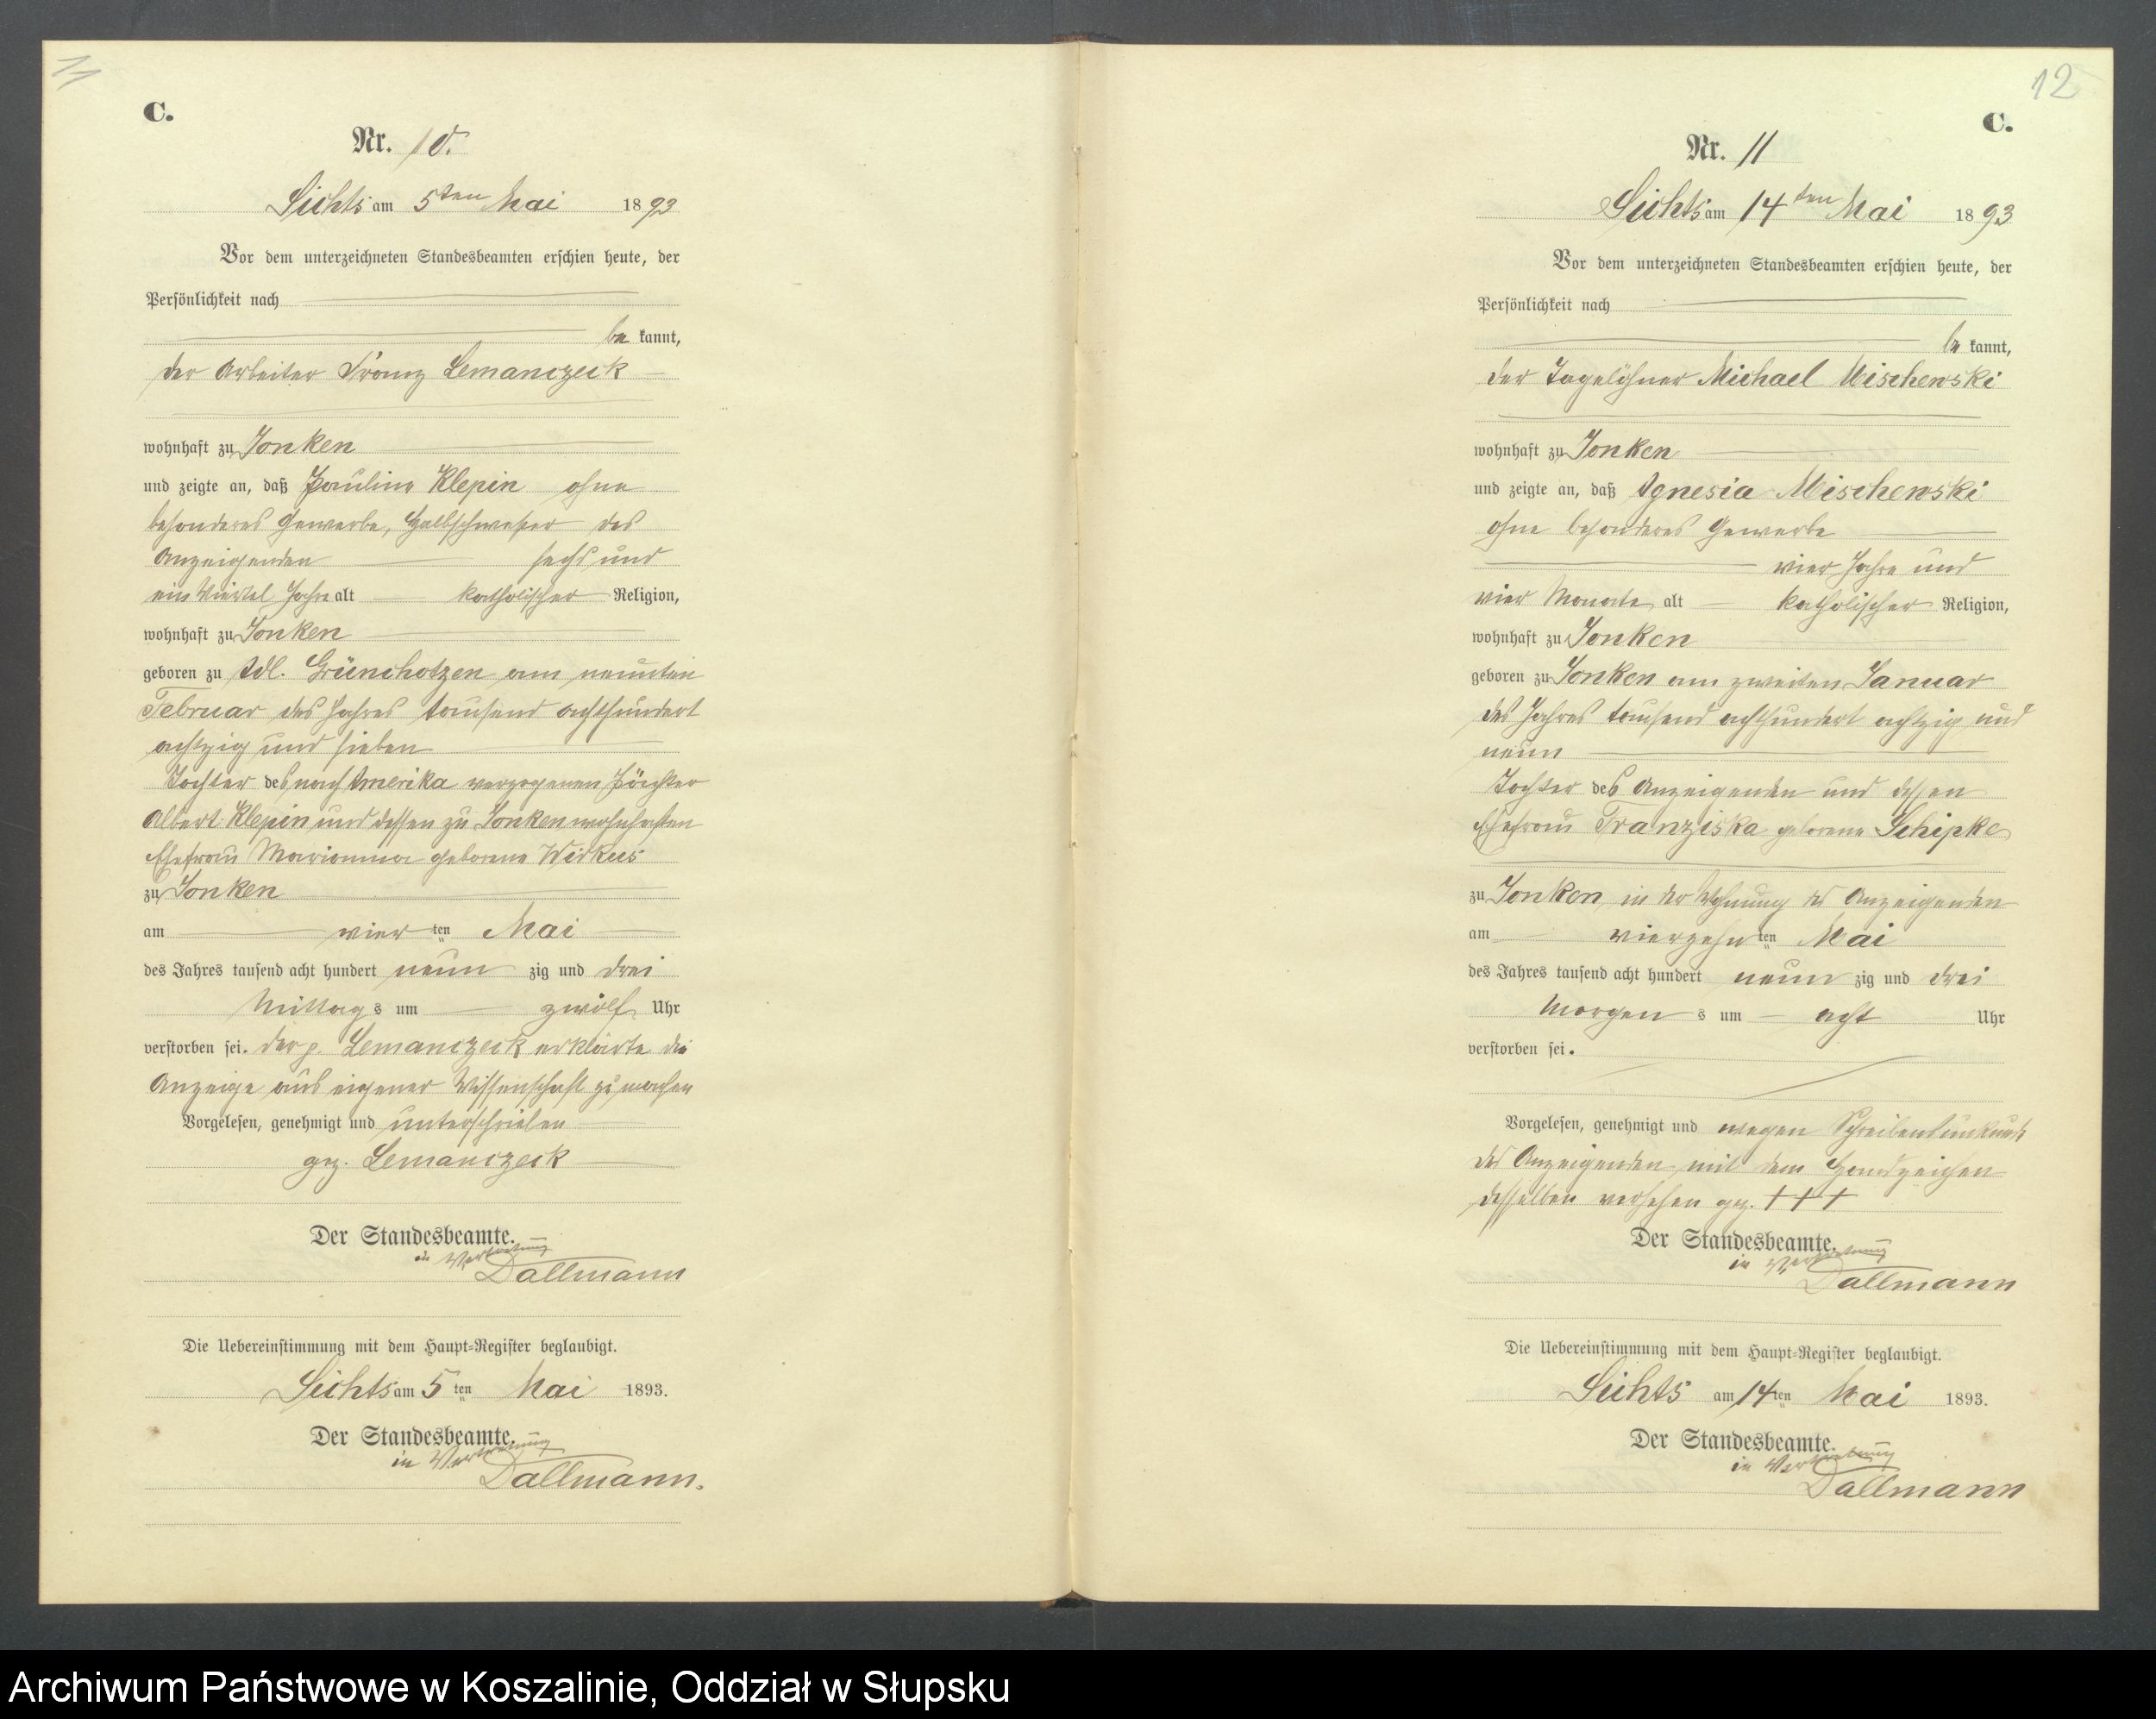 11
C.
Nr. 10.
Sichts am 5ten Mai 1893
Vor dem unterzeichneten Standesbeamten erschien heute, der
Persönlichkeit nach
bekannt,
der Arbeiter Franz Lemanczeck
wohnhaft zu Jonken
und zeigte an, daß Pauline Klepin ohne
besonderes Gewerbe, Halbschwester des
Anzeigenden sechs und
ein Viertel Jahre alt katholischer Religion,
wohnhaft zu Jonken
geboren zu Adl. Grünchotzen am neunten
Februar des Jahres tausend achthundert
achtzig und sieben
Tochter des nach Amerika verzogenen Pächter
Albert Klepin und dessen zu Jonken wohnhaften
Ehefrau Marianna geborene Wirkus
zu Jonken
am vierten Mai
des Jahres tausend acht hundert neunzig und drei
Mittags um zwölf Uhr
verstorben sei. Der p. Lemanczeck erklärte die
Anzeige aus eigener Wissenschaft zu machen
Vorgelesen, genehmigt und unterschrieben
gez. Lemanczeck
Der Standesbeamte.
in Vertretung
Dallmann
Die Uebereinstimmung mit dem Haupt-Register beglaubigt.
Sichts am 5ten Mai 1893.
Der Standesbeamte.
in Vertretung
Dallmann.
12
C.
Nr. 11
Sichts am 14ten Mai 1893
Vor dem unterzeichneten Standesbeamten erschien heute, der
Persönlichkeit nach
bekannt,
der Tagelöhner Michael Mischewski
wohnhaft zu Jonken
und zeigte an, daß Agnesia Mischewski
ohne besonderes Gewerbe
vier Jahre und
vier Monate alt katholischer Religion,
wohnhaft zu Jonken
geboren zu Jonken am zweiten Januar
des Jahres tausend achthundert achtzig und
neun
Tochter des Anzeigenden und dessen
Ehefrau Franziska geborene Schipke
zu Jonken in der Wohnung des Anzeigenden
am vierzehnten Mai
des Jahres tausend acht hundert neunzig und drei
Morgens um acht Uhr
verstorben sei.
Vorgelesen, genehmigt und wegen Schreibenunkunde
des Anzeigenden mit dem Handzeichen
desselben versehen gez. + + +
Der Standesbeamte.
in Vertretung
Dallmann
Die Uebereinstimmung mit dem Haupt-Register beglaubigt.
Sichts am 14ten Mai 1893.
Der Standesbeamte.
in Vertretung
Dallmann
Archiwum Państwowe w Koszalinie, Oddział w Słupsku